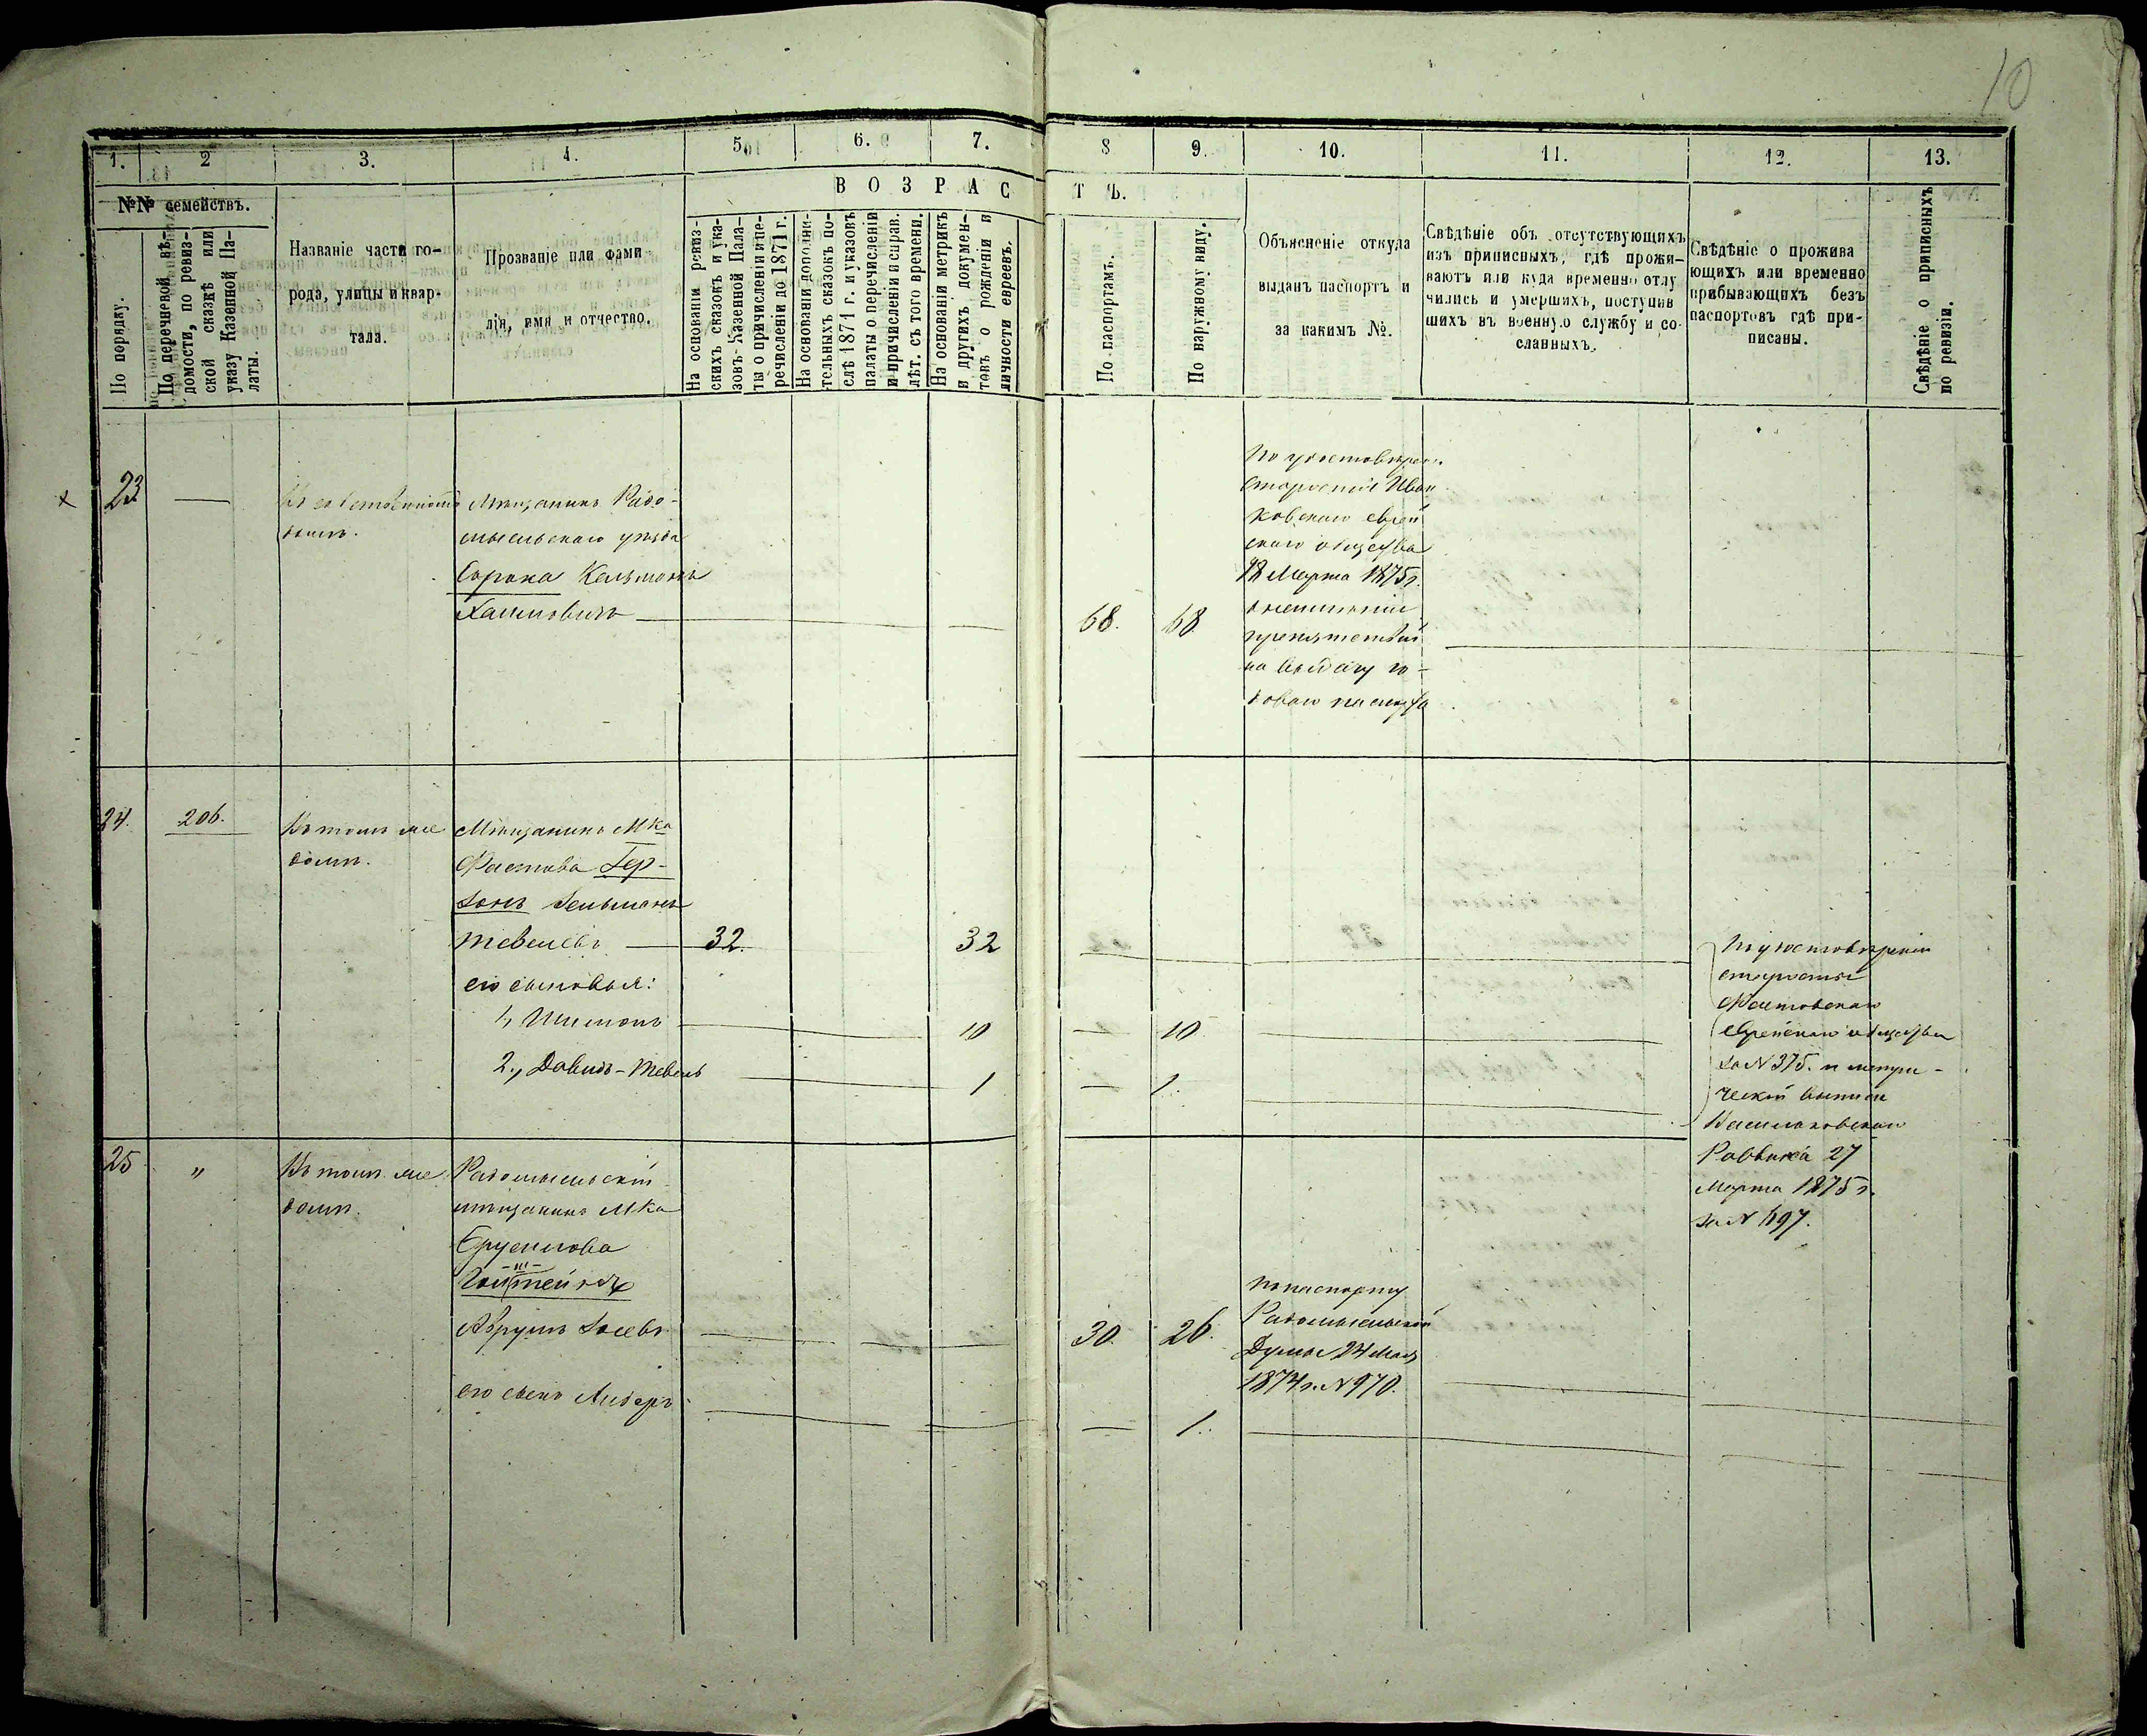 10
1.
2
3.
4.
5.
6.
7.
8
9.
10.
11.
12.
13.
№№ семействъ.
В О З Р А С Т Ъ.
По порядку.
По перечневой вѣ-
домости, по ревиз-
ской сказкѣ или
указу Казенной Па-
латы.
Названіе части го-
рода, улицы и квар-
тала.
Прозваніе или фами-
лія, имя и отчество.
На основаніи ревиз-
скихъ сказокъ и ука-
зовъ Казенной Пала-
ты о причисленіи и пе-
речисленіи до 1871 г.
На основаніи дополни-
тельныхъ сказокъ по-
слѣ 1871 г. и указовъ
палаты о перечисленіи
и причисленіи и справ.
лѣт. съ того времени.
На основаніи метрикъ
и другихъ докумен-
товъ о рожденіи и
личности евреевъ.
По паспортамъ.
По наружному виду.
Объясненіе откуда
выданъ паспортъ и
за какимъ №.
Свѣдѣніе объ отсутствующихъ
изъ приписныхъ, гдѣ прожи-
ваютъ или куда временно отлу
чились и умершихъ, поступив
шихъ въ военную службу и со-
сланныхъ.
Свѣдѣніе о прожива
ющихъ или временно
прибывающихъ безъ
паспортовъ гдѣ при-
писаны.
Свѣдѣніе о приписныхъ
по ревизіи.
23
Въ собственномъ
домѣ.
Мѣщанинъ Радо-
мысльскаго уѣзда
Сорока Кельманъ
Хаимовичъ
68.
68.
По удостовѣрен.
старосты Иван
ковскаго еврей
скаго общества
18 Марта 1875 г.
о неимѣніи
препятствій
на выдачу го-
доваго паспорта
24.
206.
Въ томъ же
домѣ.
Мѣщанинъ М-ка
Фастова Гер-
зонъ Зельманъ
Тевелевъ
32.
32
его сыновья:
1, Шимонъ
10
10
2., Давидъ-Тевель
1
1.
По удостовѣренію
старосты
Фастовскаго
еврейскаго общества
за № 375. и метри-
ческой выписи
Васильковскаго
Раввина 27
Марта 1875 г.
за № 497.
25
"
Въ томъ же
домѣ.
Радомысльскій
мѣщанинъ М-ка
Брусилова
Абрумъ Іосевъ
30.
26.
По паспорту
Радомысльской
Думы 24 Мая
1874 г. № 970.
его сынъ Лизеръ
1.